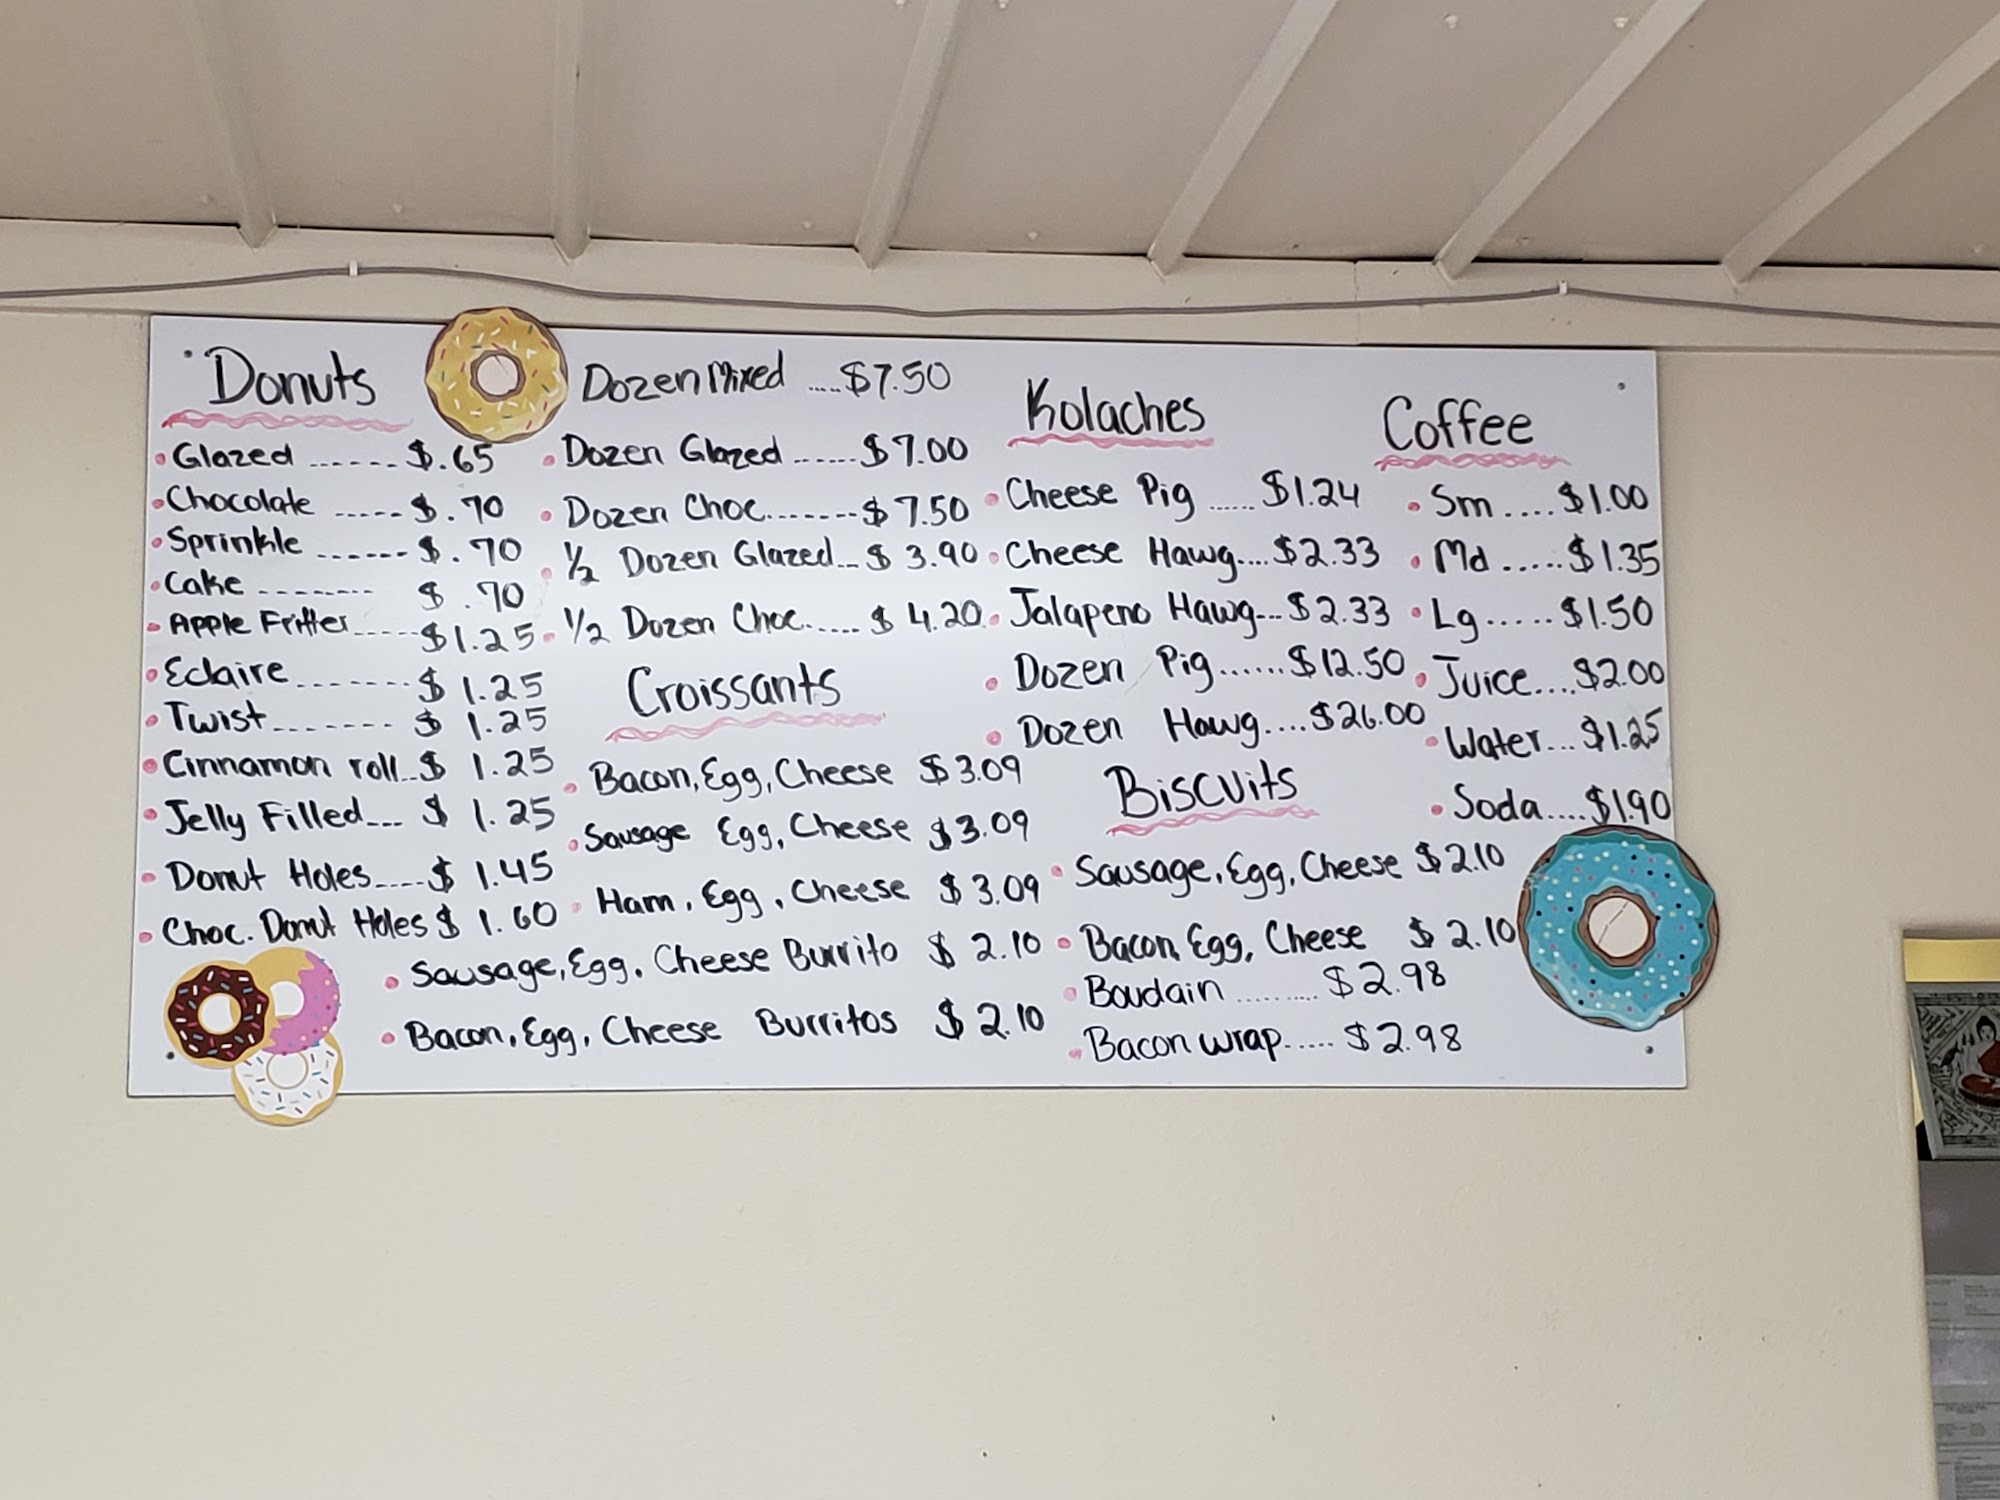 Donuts
Glazed ...... $.65
Chocolate ..... $.70
Sprinkle ...... $.70
Cake ........ $.70
Apple Fritter..... $1.25
Eclaire ....... $1.25
Twist....... $1.25
Cinnamon roll.. $1.25
Jelly Filled... $1.25
Donut Holes.... $1.45
Choc. Donut Holes $1.60
Dozen Mixed ..... $7.50
Dozen Glazed ...... $7.00
Dozen Choc....... $7.50
1/2 Dozen Glazed... $3.90
1/2 Dozen Choc...... $4.20
Croissants
Bacon, Egg, Cheese $3.09
Sausage Egg, Cheese $3.09
Ham, Egg, Cheese $3.09
Sausage, Egg, Cheese Burrito $2.10
Bacon, Egg, Cheese Burritos $2.10
Kolaches
Cheese Pig ...... $1.24
Cheese Hawg.... $2.33
Jalapeno Hawg... $2.33
Dozen Pig...... $12.50
Dozen Hawg.... $26.00
Biscuits
Sausage, Egg, Cheese $2.10
Bacon, Egg, Cheese $2.10
Boudain .......... $2.98
Bacon wrap...... $2.98
Coffee
Sm .... $1.00
Md ..... $1.35
Lg ..... $1.50
Juice.... $2.00
Water... $1.25
Soda.... $1.90